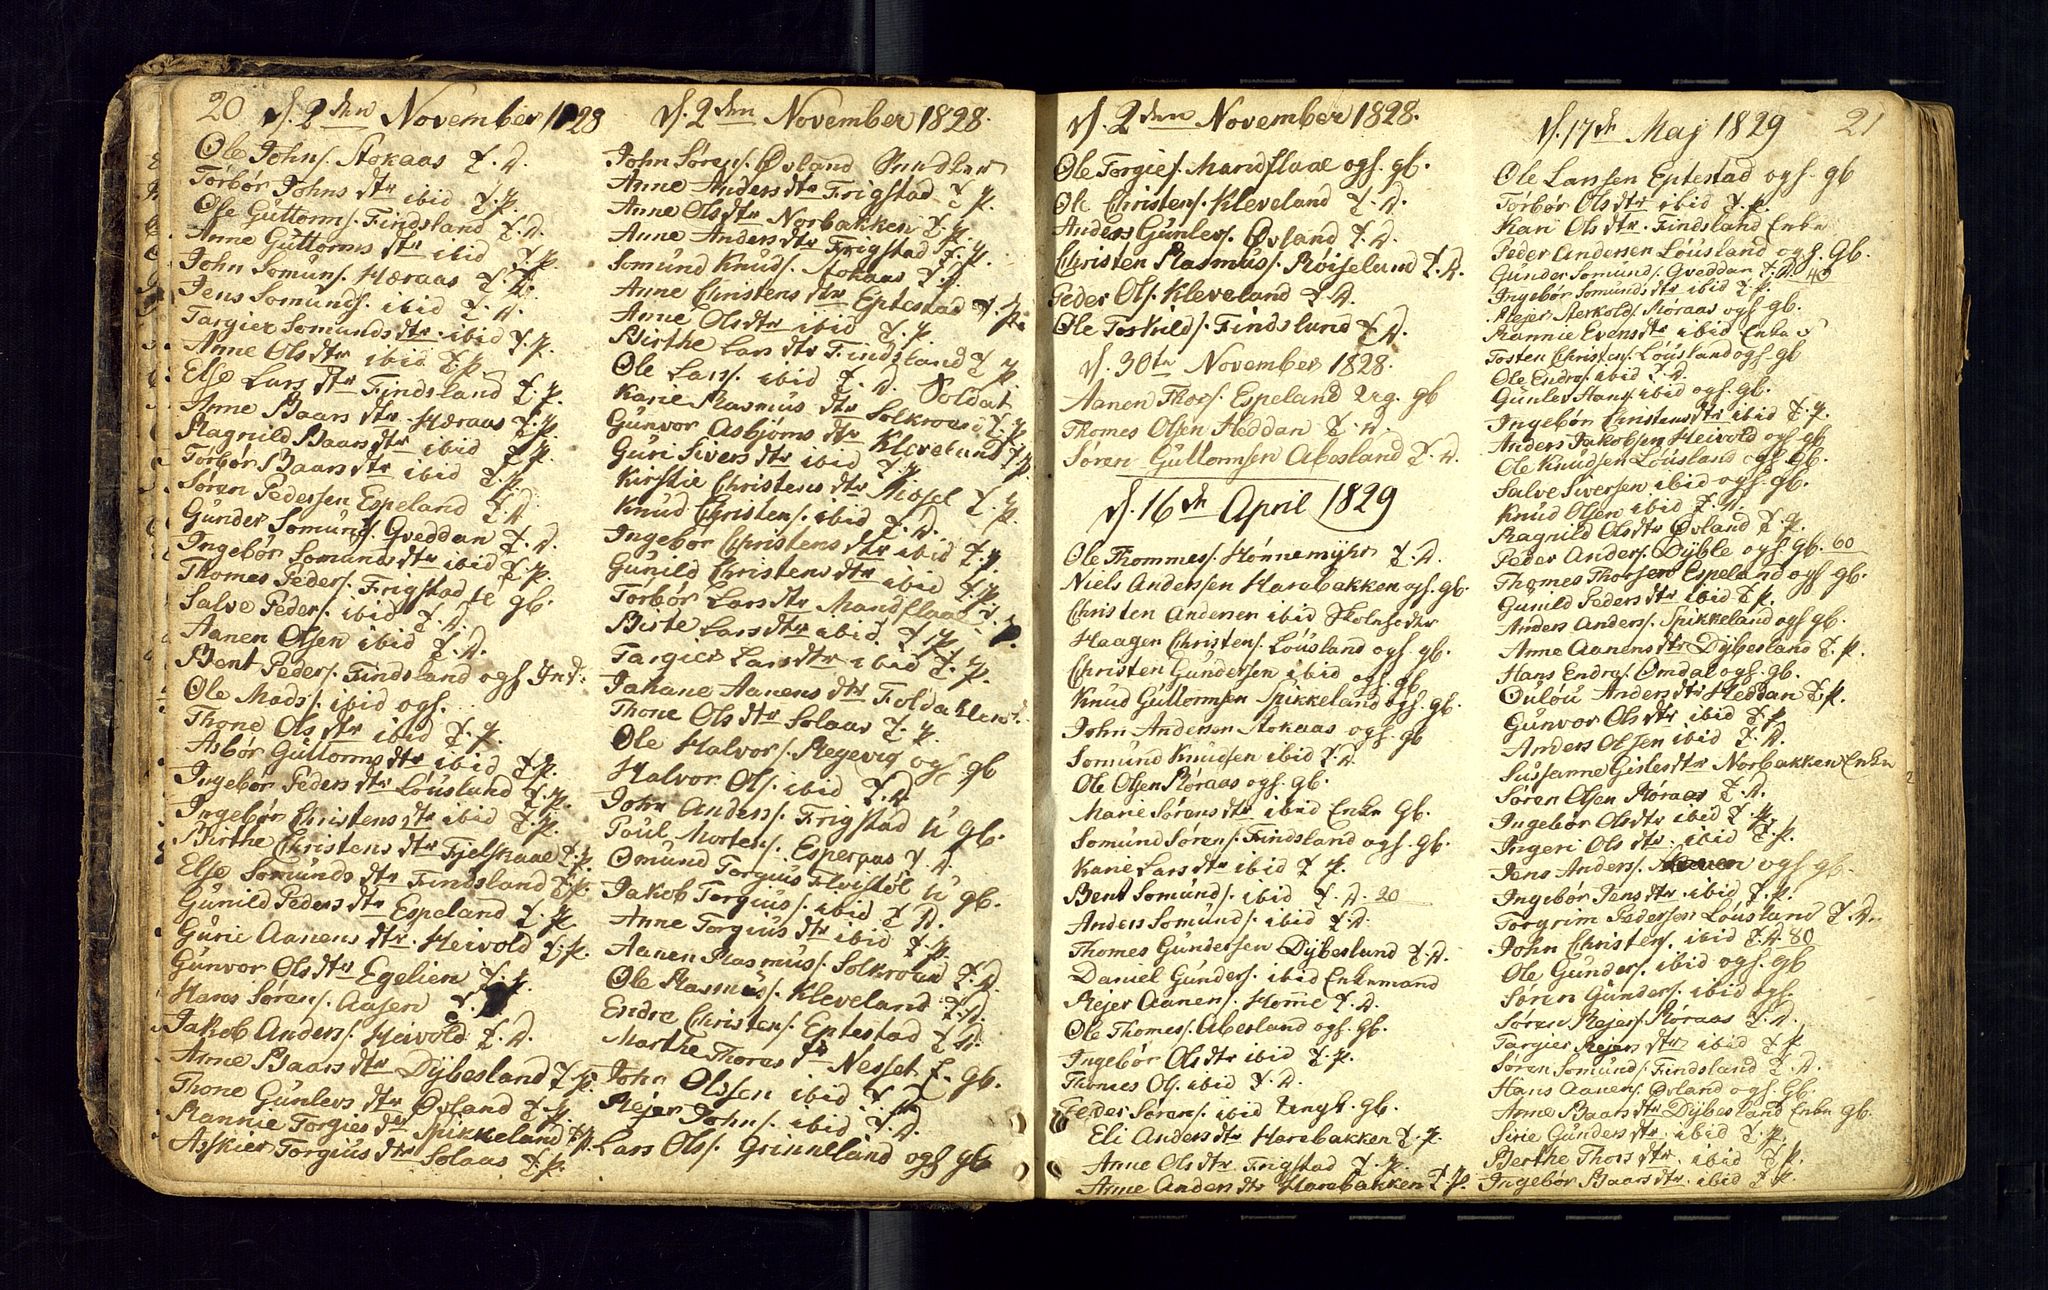 20 d. 2den November 1828
Ole Johns. Stokaas T. D.
Torbør Johnsdtr ibid T. p.
Ole Guttorms. Findsland T. D.
Anne Guttormsdtr ibid T. p.
John Somuns. Hæraas T. D.
Jens Somunds. ibid T. D.
Targier Somundsdtr. ibid T. p.
Anne Olsdtr ibid T. p.
Else Larsdtr Findsland T. p.
Anne Baarsdtr Hæraas T. p.
Ragnild Baarsdtr ibid T. p.
Torbør Baarsdtr ibid T. p.
Søren Pedersen Espeland T. D.
Gunder Somuns. Qveddan T. D.
Ingebør Somunsdtr ibid T. p.
Thomes Peders. Frigstad gb.
Salve Peders. ibid T. D.
Aanen Olsen ibid T. D.
Bent Peders. Findsland ogs
Ole Mads. ibid ogs.
Thone Olsdtr ibid T. p.
Asbør Guttormsdtr ibid T. p.
Ingebør Pedersdtr Løusland T. p.
Ingebør Christensdtr ibid T. p.
Birthe Christensdtr Fjelskaae T. p.
Else Somundsdtr Findsland T. p.
Gunild Pedersdtr Espeland T. p.
Gurie Aanensdtr. Heivold T. p.
Gunvor Olsdtr Egelien T. p.
Hans Sørens. Aasen T.
Jakob Anders. Heivold T. D.
Anne Baarsdtr Dybesland T. p.
Thone Gunlevsdtr Øvland T. p.
Rannie Torgiesdtr Spikkeland T. p.
Askier Torgiusdtr Solaas T. p.
d. 2den November 1828.
John Sørens. Øvland
Anne Andersdtr Frigstad T. p.
Anne Olsdtr Norbakken T. p.
Anne Andersdtr Frigstad T. p.
Somund Knuds. Stokaas T. D.
Anne Christensdtr Eptestad T. p.
Anne Olsdtr ibid T. p.
Birthe Larsdtr Findsland T. p.
Ole Lars. ibid T. D. Soldat
Karie Rasmusdtr Solkroae T. p.
Gunvor Asbjørnsdtr Kleveland T. p.
Guri Siversdtr ibid T. p.
Kirstie Christensdtr T. p.
Knud Christens. ibid T. D.
Ingebør Christensdtr ibid T. p.
Gunild Christensdtr ibid T. p.
Torbør Larsdtr Mandflaae
Birte Larsdtr ibid T. p.
Targier Larsdtr ibid T. p.
Jahane Aanensdtr
Thone Olsdtr Solaas T. p.
Ole Halvors. Regevig ogs. gb
Halvor Ols. ibid T. D.
John Anders. Frigstad U gb.
Poul Mortens. Esperaas T. D.
Omund Torgius Flvistøl U gb.
Jakob Torgius. ibid T. D.
Anne Torgiusdtr ibid T. p.
Aanen Rasmus. Solkroae T. D.
Ole Rasmus. Kleveland T. D.
Endre Christens. Eptestad T. D.
Marthe Thorasdtr Nesset E. gb.
John Olssen ibid T. D.
Rejer Johns. ibid T. D.
Lars Ols. Grinneland ogs gb
d. 2den November 1828.
Ole Torgies. Mandflaae ogs. gb.
Ole Christens. Kleveland T. D.
Anders Gunlevs. Øvland T. D.
Christen Rasmus. Røiseland T. D.
Peder Ols. Kleveland T. D.
Ole Toskilds. Findsland T. D.
d. 30te November 1828.
Aanen Thors. Espeland gb
Thomes Olsen Heddan T. D.
Søren Guttormsen Abesland T. D.
d. 16de April 1829
Ole Thommes. Hønnemyhr T. D.
Niels Anderssen Harebakken ogs. gb.
Christen Andersen ibid Skolholder
Haagen Christens. Løusland ogs. gb.
Christen Gundersen ibid ogs. gb
Knud Guttormsen Spikkeland ogs. gb.
John Andersen Stokaas ogs. gb
Somund Knudsen ibid T. D.
Ole Olsen Røraas ogs. gb.
Marie Sørensdtr ibid Enke gb.
Somund Sørens. Findsland ogs. gb.
Karie Larsdtr ibid T. p.
Bent Somunds. ibid T. D. 20
Anders Somunds. ibid T. D.
Thomes Gundersen Dybesland T. D.
Daniel Gunders. ibid Enkemand
Rejer Aanens. Home T. D.
Ole Thomes. Abesland ogs. gb.
Ingebør Olsdtr ibid T. p.
Thomes Ols. ibid T. D.
Peder Sørens. ibid gb.
Eli Andersdtr Harebakken T. p.
Anne Olsdtr Frigstad T. p.
Anne Andersdtr Harebakken T. p.
d. 17de Maj 1829 21
Ole Larssen Eptestad ogs. gb
Torbør Olsdtr ibid T. p.
Kari Olsdtr. Findsland Enke
Peder Andersen Løusland ogs. gb.
Gunder Somunds. Qveddan T. D. 40
Ingebør Somundsdtr ibid T. p.
Rejer Sterkolds. Røraas ogs gb.
Rannie Evensdtr ibid Enke
Tosten Christens. Løusland ogs. gb
Ole Endres. ibid T. D.
Gunlev Hans. ibid ogs. gb.
Ingebør Christensdtr ibid T. p.
Anders Jakobsen Heivold ogs gb
Ole Knudsen Løusland ogs gb.
Salve Siversen ibid ogs. gb.
Knud Olsen ibid T. D.
Ragnild Olsdtr Øvland T. p.
Peder Anders. Dyble ogs. gb. 60
Thomes Thorsen Espeland ogs gb.
Gunild Pedersdtr ibid T. p.
Anders Anders. Spikkeland ogs gb.
Anne Aanensdtr Dybesland T. p.
Hans Endres. Omdal ogs. gb.
Oulou Andersdtr Heddan T. p.
Gunvor Olsdtr ibid T. p
Anders Olsen ibid T. D.
Sussanne Gislesdtr Norbakken Enke
Søren Olsen Røraas T. D.
Ingebør Olsdtr ibid T. p.
Ingeri Olsdtr. ibid T. p.
Jens Anders. ogs gb.
Ingebør Jensdtr ibid T. p.
Torgrim Pedersen Løusland T. D.
John Christens. ibid T. D. 80
Ole Gunders. ibid ogs. gb
Søren Gunders. ibid ogs.
Søren Rejers. Røraas T. D.
Targier Rejersdtr ibid T. p
Søren Somunds. Findsland T. D.
Hans Aanens. Øvland ogs. gb.
Anne Baarsdtr Dybesland Enke gb.
Sirie Gundersdtr ibid T. p.
Berthe Thorsdtr. ibid T. p.
Ingebør Baarsdtr. ibid T. p.